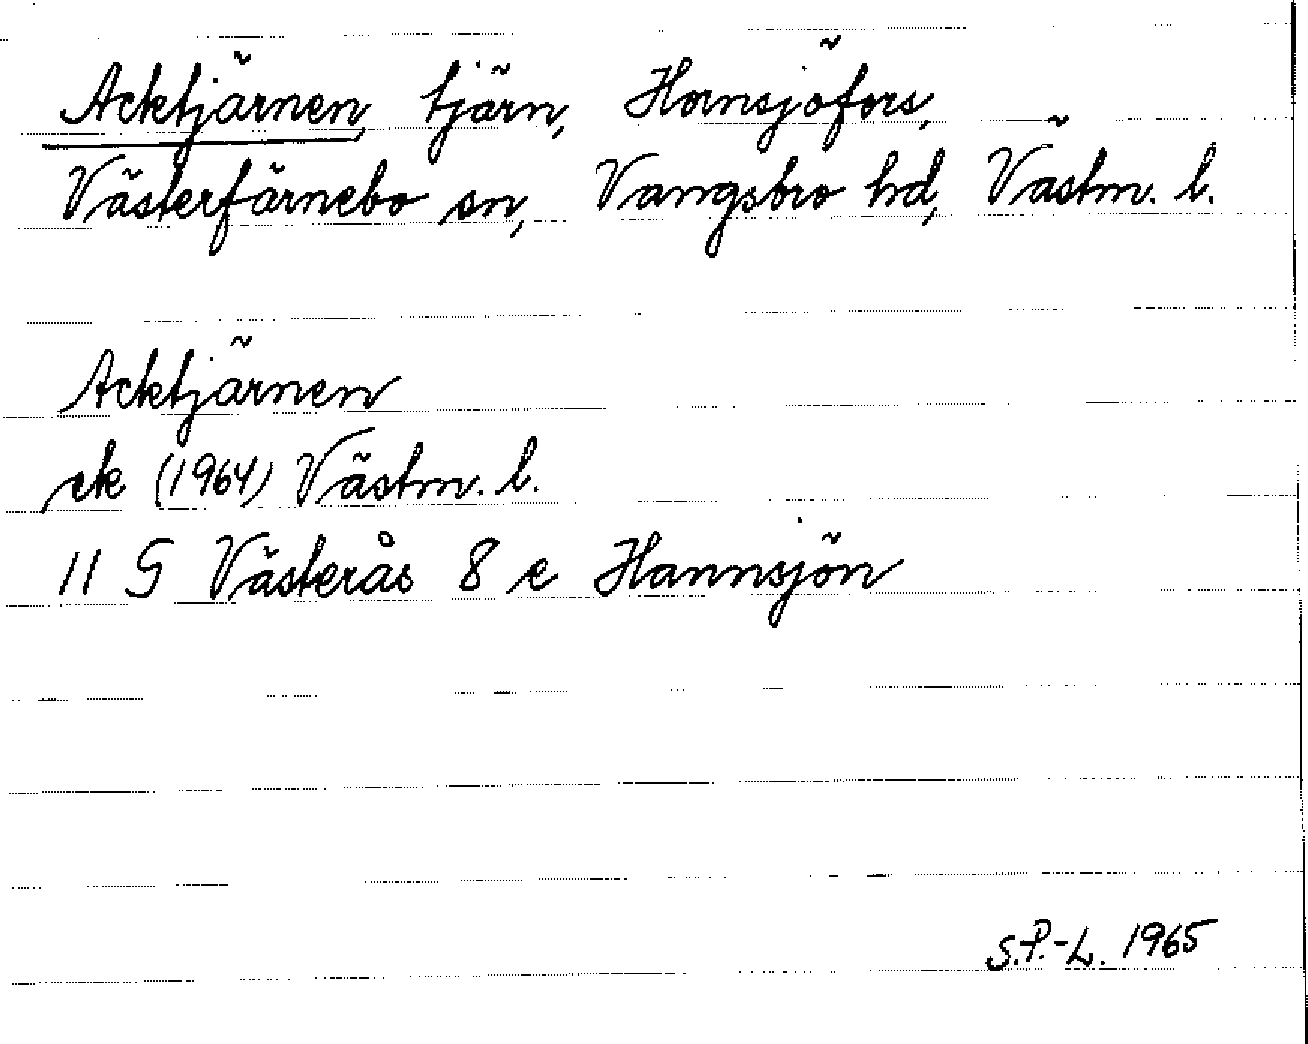 Acktjärnen, tjärn, Hornsjöfors,
Västerfärnebo sn, Vangsbro hd, Västm. l.
Acktjärnen
ek (1964) Västm. l.
11 G Västerås 8 e Hannsjön
S.P.-L. 1965